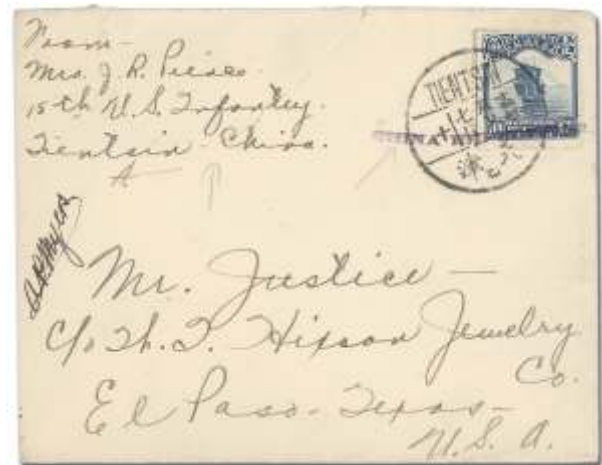 From-
Mrs. J. R. Pierce.
15th U.S. Infantry.
Tientsin - China.
TIENTSIN
津
Mr. Justice -
c/o W. T. Hixson Jewelry
Co.
El Paso - Texas -
U. S. A.